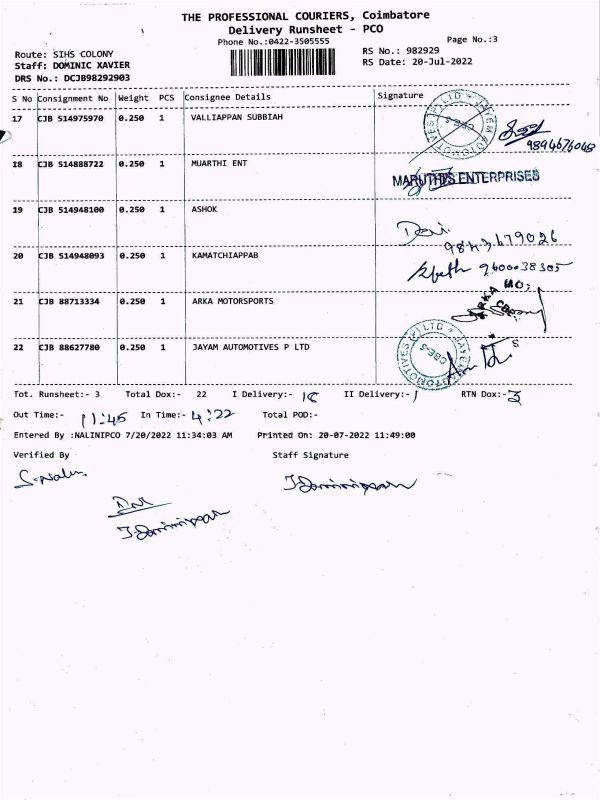 THE PROFESSIONAL COURIERS, Coimbatore
Delivery Runsheet - PCO
Phone No.:0422-3505555
Page No.:3
Route: SIHS COLONY
RS No.: 982929
Staff: DOMINIC XAVIER
RS Date: 20-Jul-2022
DRS No.: DCJB98292903
S No Consignment No Weight PCS Consignee Details Signature
17 CJB 514975970 0.250 1 VALLIAPPAN SUBBIAH
9894676048
18 CJB 514888722 0.250 1 MUARTHI ENT
MARUTHI'S ENTERPRISES
19 CJB 514948100 0.250 1 ASHOK
Devi
9843679026
20 CJB 514948093 0.250 1 KAMATCHIAPPAB
9600038305
21 CJB 88713334 0.250 1 ARKA MOTORSPORTS
22 CJB 88627780 0.250 1 JAYAM AUTOMOTIVES P LTD
JAYEM AUTOMOTIVES (P) LTD
CBE-5
Tot. Runsheet:- 3 Total Dox:- 22 I Delivery:- 18 II Delivery:- 1 RTN Dox:- 3
Out Time:- 11:45 In Time:- 4:22 Total POD:-
Entered By :NALINIPCO 7/20/2022 11:34:03 AM Printed On: 20-07-2022 11:49:00
Verified By Staff Signature
S.Nalini